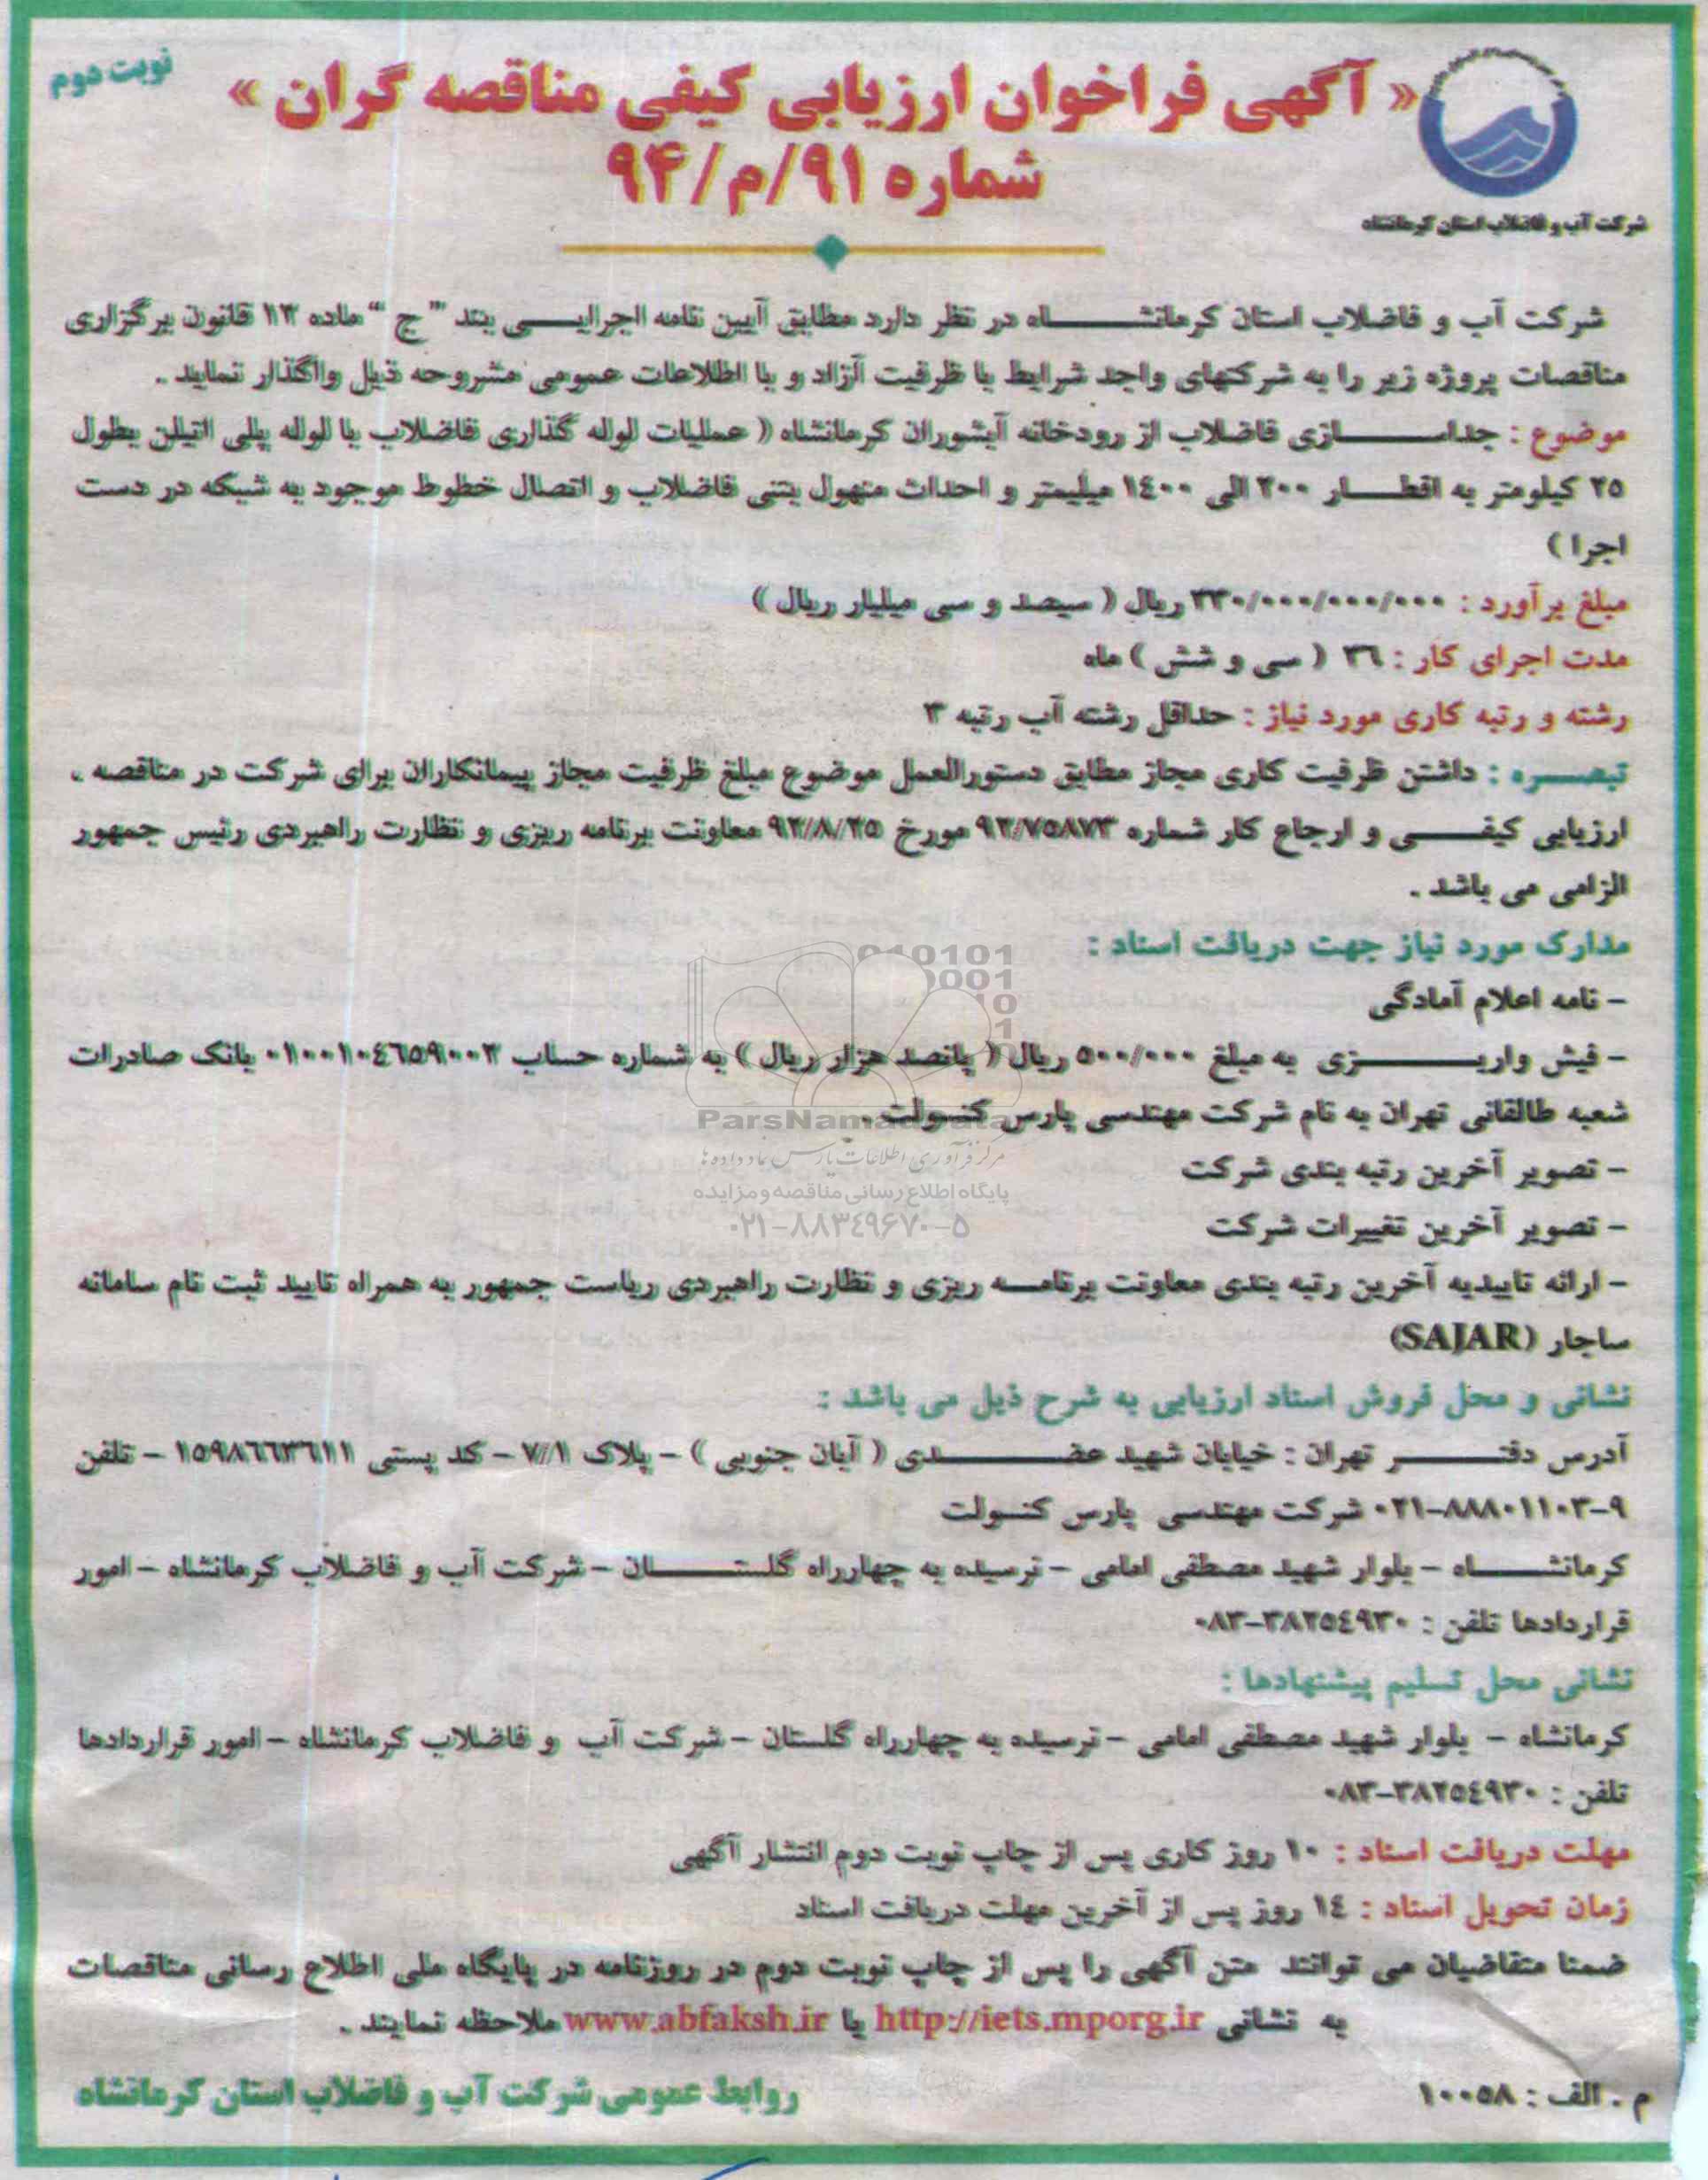 نوبت دوم
« آگهی فراخوان ارزیابی کیفی مناقصه گران »
شماره ۹۱/م/۹۴
شرکت آب و فاضلاب استان کرمانشاه
شرکت آب و فاضلاب استان کرمانشاه در نظر دارد مطابق آیین نامه اجرایی بند "ج" ماده ۱۳ قانون برگزاری
مناقصات پروژه زیر را به شرکتهای واجد شرایط با ظرفیت آزاد و با اطلاعات عمومی مشروحه ذیل واگذار نماید .
موضوع : جداسازی فاضلاب از رودخانه آبشوران کرمانشاه ( عملیات لوله گذاری فاضلاب با لوله پلی اتیلن بطول
۲۵ کیلومتر به اقطار ۲۰۰ الی ۱۴۰۰ میلیمتر و احداث منهول بتنی فاضلاب و اتصال خطوط موجود به شبکه در دست
اجرا )
مبلغ برآورد : ۳۳۰/۰۰۰/۰۰۰/۰۰۰ ریال ( سیصد و سی میلیار ریال )
مدت اجرای کار : ۳۶ ( سی و شش ) ماه
رشته و رتبه کاری مورد نیاز : حداقل رشته آب رتبه ۳
تبصره : داشتن ظرفیت کاری مجاز مطابق دستورالعمل موضوع مبلغ ظرفیت مجاز پیمانکاران برای شرکت در مناقصه ،
ارزیابی کیفی و ارجاع کار شماره ۹۲/۷۵۸۷۳ مورخ ۹۲/۸/۲۵ معاونت برنامه ریزی و نظارت راهبردی رئیس جمهور
الزامی می باشد .
مدارک مورد نیاز جهت دریافت اسناد :
- نامه اعلام آمادگی
- فیش واریزی به مبلغ ۵۰۰/۰۰۰ ریال ( پانصد هزار ریال ) به شماره حساب ۰۱۰۰۱۰۴۶۵۹۰۰۳ بانک صادرات
شعبه طالقانی تهران به نام شرکت مهندسی پارس کنسولت .
- تصویر آخرین رتبه بندی شرکت
- تصویر آخرین تغییرات شرکت
- ارائه تاییدیه آخرین رتبه بندی معاونت برنامه ریزی و نظارت راهبردی ریاست جمهور به همراه تایید ثبت نام سامانه
ساجار (SAJAR)
نشانی و محل فروش اسناد ارزیابی به شرح ذیل می باشد :
آدرس دفتر تهران : خیابان شهید عضدی ( آبان جنوبی ) - پلاک ۷/۱ - کد پستی ۱۵۹۸۶۶۳۶۱۱ - تلفن
۰۲۱-۸۸۸۰۱۱۰۳-۹ شرکت مهندسی پارس کنسولت
کرمانشاه - بلوار شهید مصطفی امامی - نرسیده به چهارراه گلستان - شرکت آب و فاضلاب کرمانشاه - امور
قراردادها تلفن : ۰۸۳-۳۸۲۵۴۹۳۰
نشانی محل تسلیم پیشنهادها :
کرمانشاه - بلوار شهید مصطفی امامی - نرسیده به چهارراه گلستان - شرکت آب و فاضلاب کرمانشاه - امور قراردادها
تلفن : ۰۸۳-۳۸۲۵۴۹۳۰
مهلت دریافت اسناد : ۱۰ روز کاری پس از چاپ نوبت دوم انتشار آگهی
زمان تحویل اسناد : ۱۴ روز پس از آخرین مهلت دریافت اسناد
ضمنا متقاضیان می توانند متن آگهی را پس از چاپ نوبت دوم در روزنامه در پایگاه ملی اطلاع رسانی مناقصات
به نشانی http://iets.mporg.ir یا www.abfaksh.ir ملاحظه نمایند .
روابط عمومی شرکت آب و فاضلاب استان کرمانشاه
م . الف : ۱۰۰۵۸
ParsNamadData
مرکز فرآوری اطلاعات پارس نماد داده ها
پایگاه اطلاع رسانی مناقصه و مزایده
۰۲۱-۸۸۳۴۹۶۷۰-۵